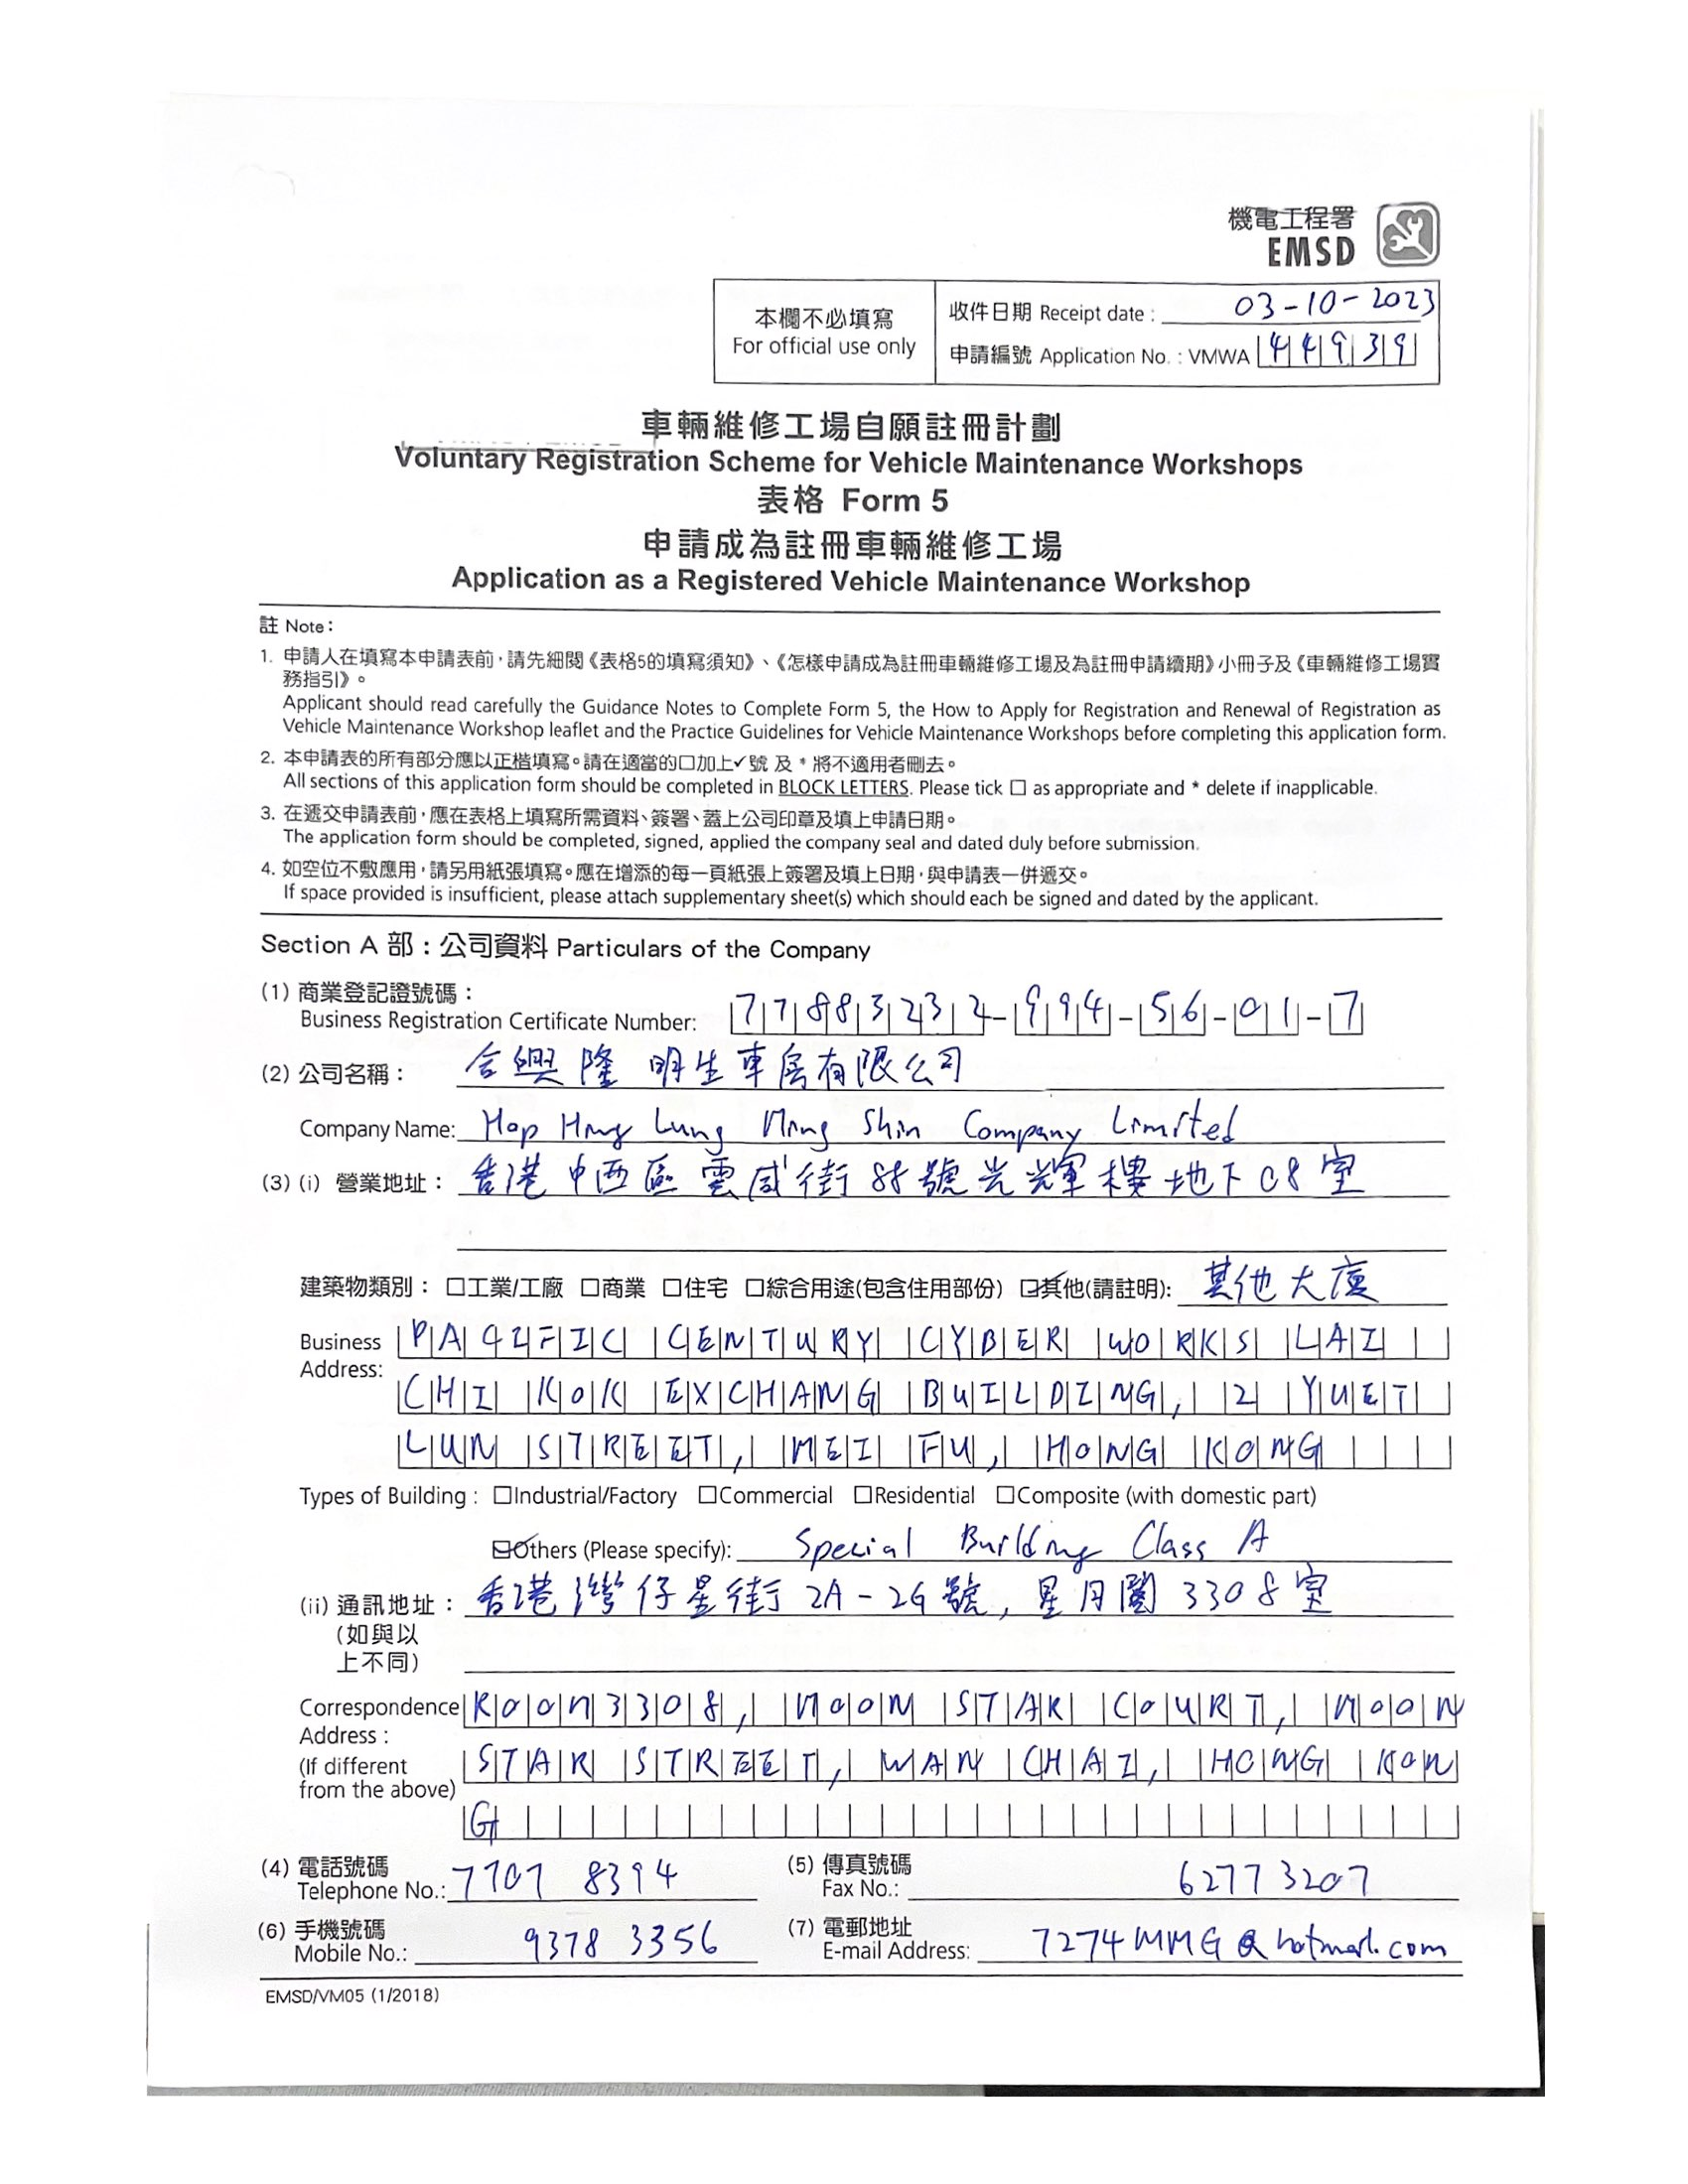 機電工程署
EMSD
本欄不必填寫
For official use only
收件日期 Receipt date : 03-10-2023
申請編號 Application No. : VMWA 44939
車輛維修工場自願註冊計劃
Voluntary Registration Scheme for Vehicle Maintenance Workshops
表格 Form 5
申請成為註冊車輛維修工場
Application as a Registered Vehicle Maintenance Workshop
註 Note :
1. 申請人在填寫本申請表前,請先細閱《表格5的填寫須知》、《怎樣申請成為註冊車輛維修工場及為註冊申請續期》小冊子及《車輛維修工場實
務指引》。
Applicant should read carefully the Guidance Notes to Complete Form 5, the How to Apply for Registration and Renewal of Registration as
Vehicle Maintenance Workshop leaflet and the Practice Guidelines for Vehicle Maintenance Workshops before completing this application form.
2. 本申請表的所有部分應以正楷填寫。請在適當的□加上✓號 及 * 將不適用者刪去。
All sections of this application form should be completed in BLOCK LETTERS. Please tick □ as appropriate and * delete if inapplicable.
3. 在遞交申請表前,應在表格上填寫所需資料、簽署、蓋上公司印章及填上申請日期。
The application form should be completed, signed, applied the company seal and dated duly before submission.
4. 如空位不敷應用,請另用紙張填寫。應在增添的每一頁紙張上簽署及填上日期,與申請表一併遞交。
If space provided is insufficient, please attach supplementary sheet(s) which should each be signed and dated by the applicant.
Section A 部 : 公司資料 Particulars of the Company
(1) 商業登記證號碼 :
Business Registration Certificate Number: 77883232-994-56-01-7
(2) 公司名稱 : 合興隆明生車房有限公司
Company Name: Hop Hing Lung Ming Shin Company Limited
(3) (i) 營業地址 : 香港中西區雲咸街88號光輝樓地下08室
建築物類別 : □工業/工廠 □商業 □住宅 □綜合用途(包含住用部份) ☑其他(請註明): 其他大廈
Business PACIFIC CENTURY CYBER WORKS LAI
Address: CHI KOK EXCHANG BUILDING, 2 YUET
LUN STREET, MEI FU, HONG KONG
Types of Building : □Industrial/Factory □Commercial □Residential □Composite (with domestic part)
☑Others (Please specify): Special Building Class A
(ii) 通訊地址 : 香港灣仔星街2A-2G號, 星月閣3308室
(如與以
上不同)
Correspondence ROOM3308, MOON STAR COURT, MOON
Address :
(If different STAR STREET, WAN CHAI, HONG KON
from the above)
G
(4) 電話號碼
Telephone No.: 7707 8394
(5) 傳真號碼
Fax No.: 6277 3207
(6) 手機號碼
Mobile No.: 9378 3356
(7) 電郵地址
E-mail Address: 7274MMG@hotmail.com
EMSD/VM05 (1/2018)